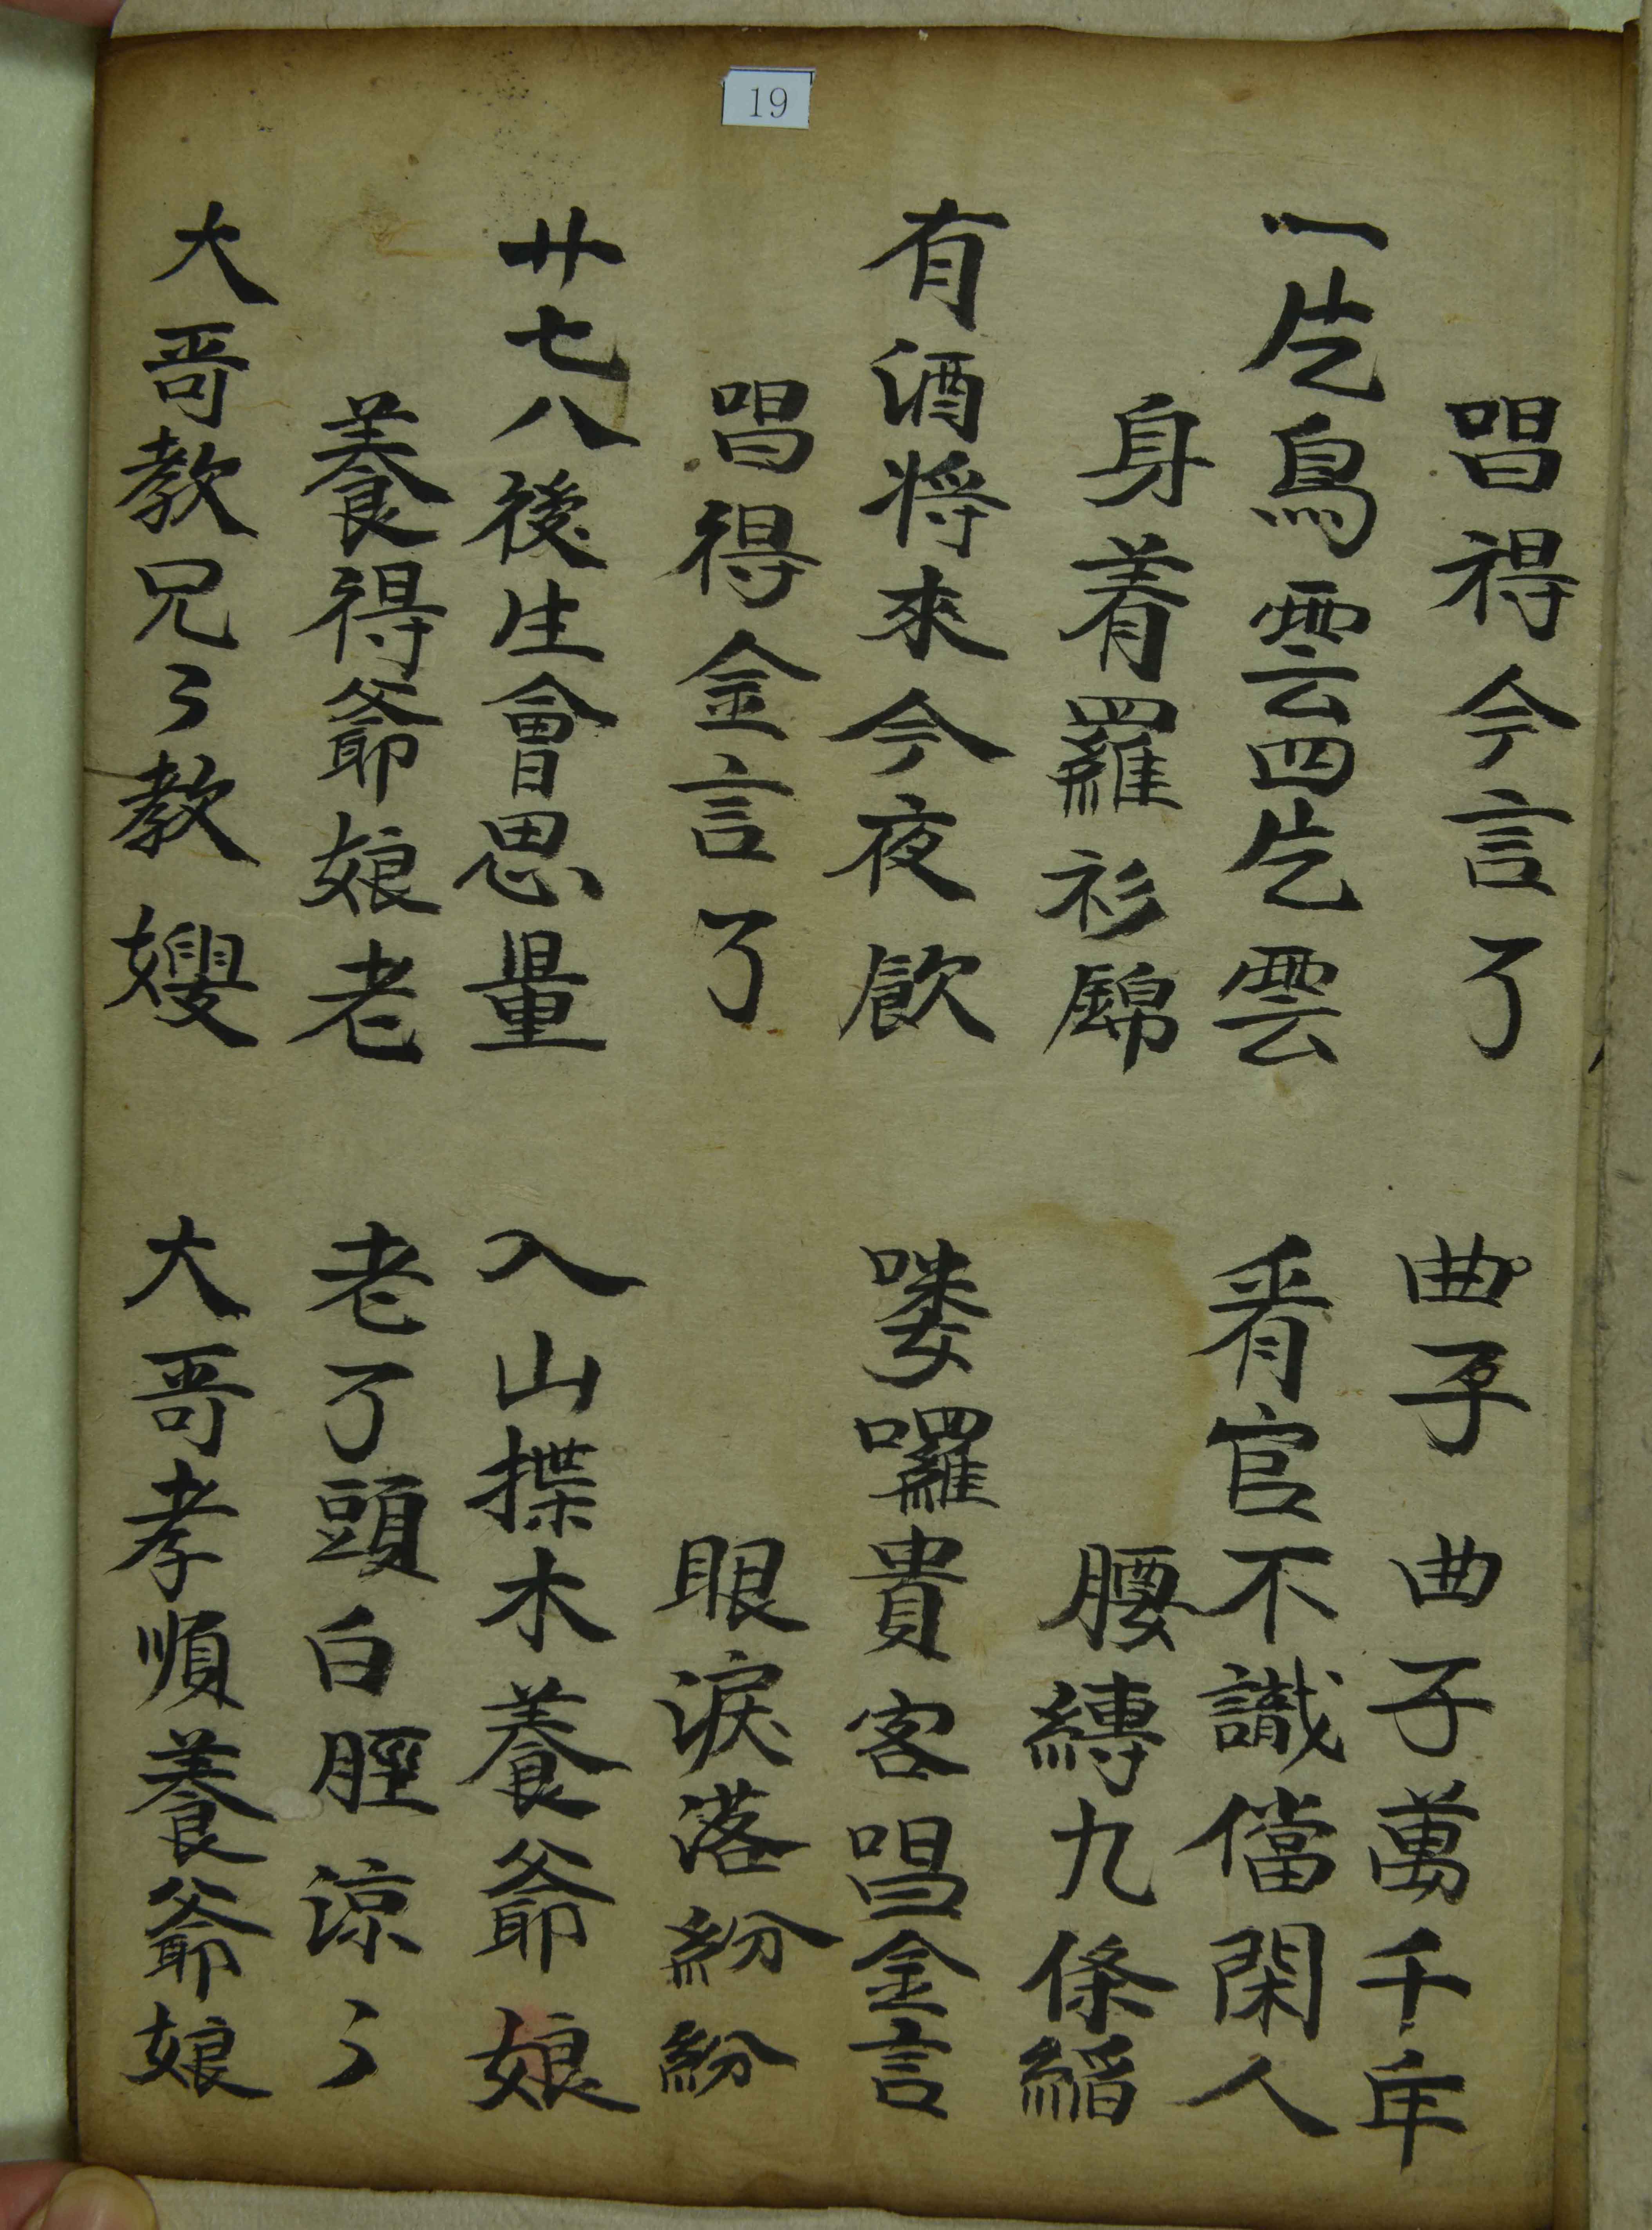 19
唱得今言了
曲子曲子萬千年
一片鳥雲四片雲
看官不識儅閑人
身着羅衫錦
腰縛九條縚
有酒将來今夜飲
嘍囉貴客唱金言
唱得金言了
眼淚落紛紛
廿七八後生會思量
入山揲木養爺娘
養得爺娘老
老了頭白脛涼〻
大哥教兄〻教嫂
大哥孝順養爺娘